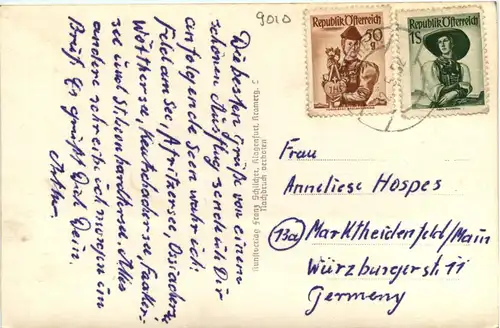 9010
Republik Österreich
30
g
Republik Österreich
1S
Die besten Grüße von einem
schönen Ausflug sende ich Dir
an folgende Seen war ich:
Feld am See, Afritzersee, Ossiachersee
Wörthersee, Keutschachersee, Faaker-
see und St. Leonhardsee. Alles
andere schreibe ich morgen im
Brief. Es grüßt Dich Dein
Arthur.
Kunstverlag Franz Schilcher, Klagenfurt,
Nachdruck verboten
Frau
Anneliese Hospes
13a Marktheidenfeld/Main
Würzburgerstr 11
Germeny